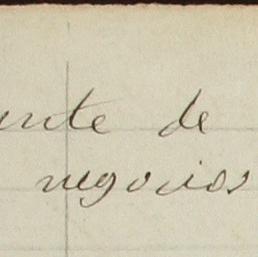 ente de
negocios